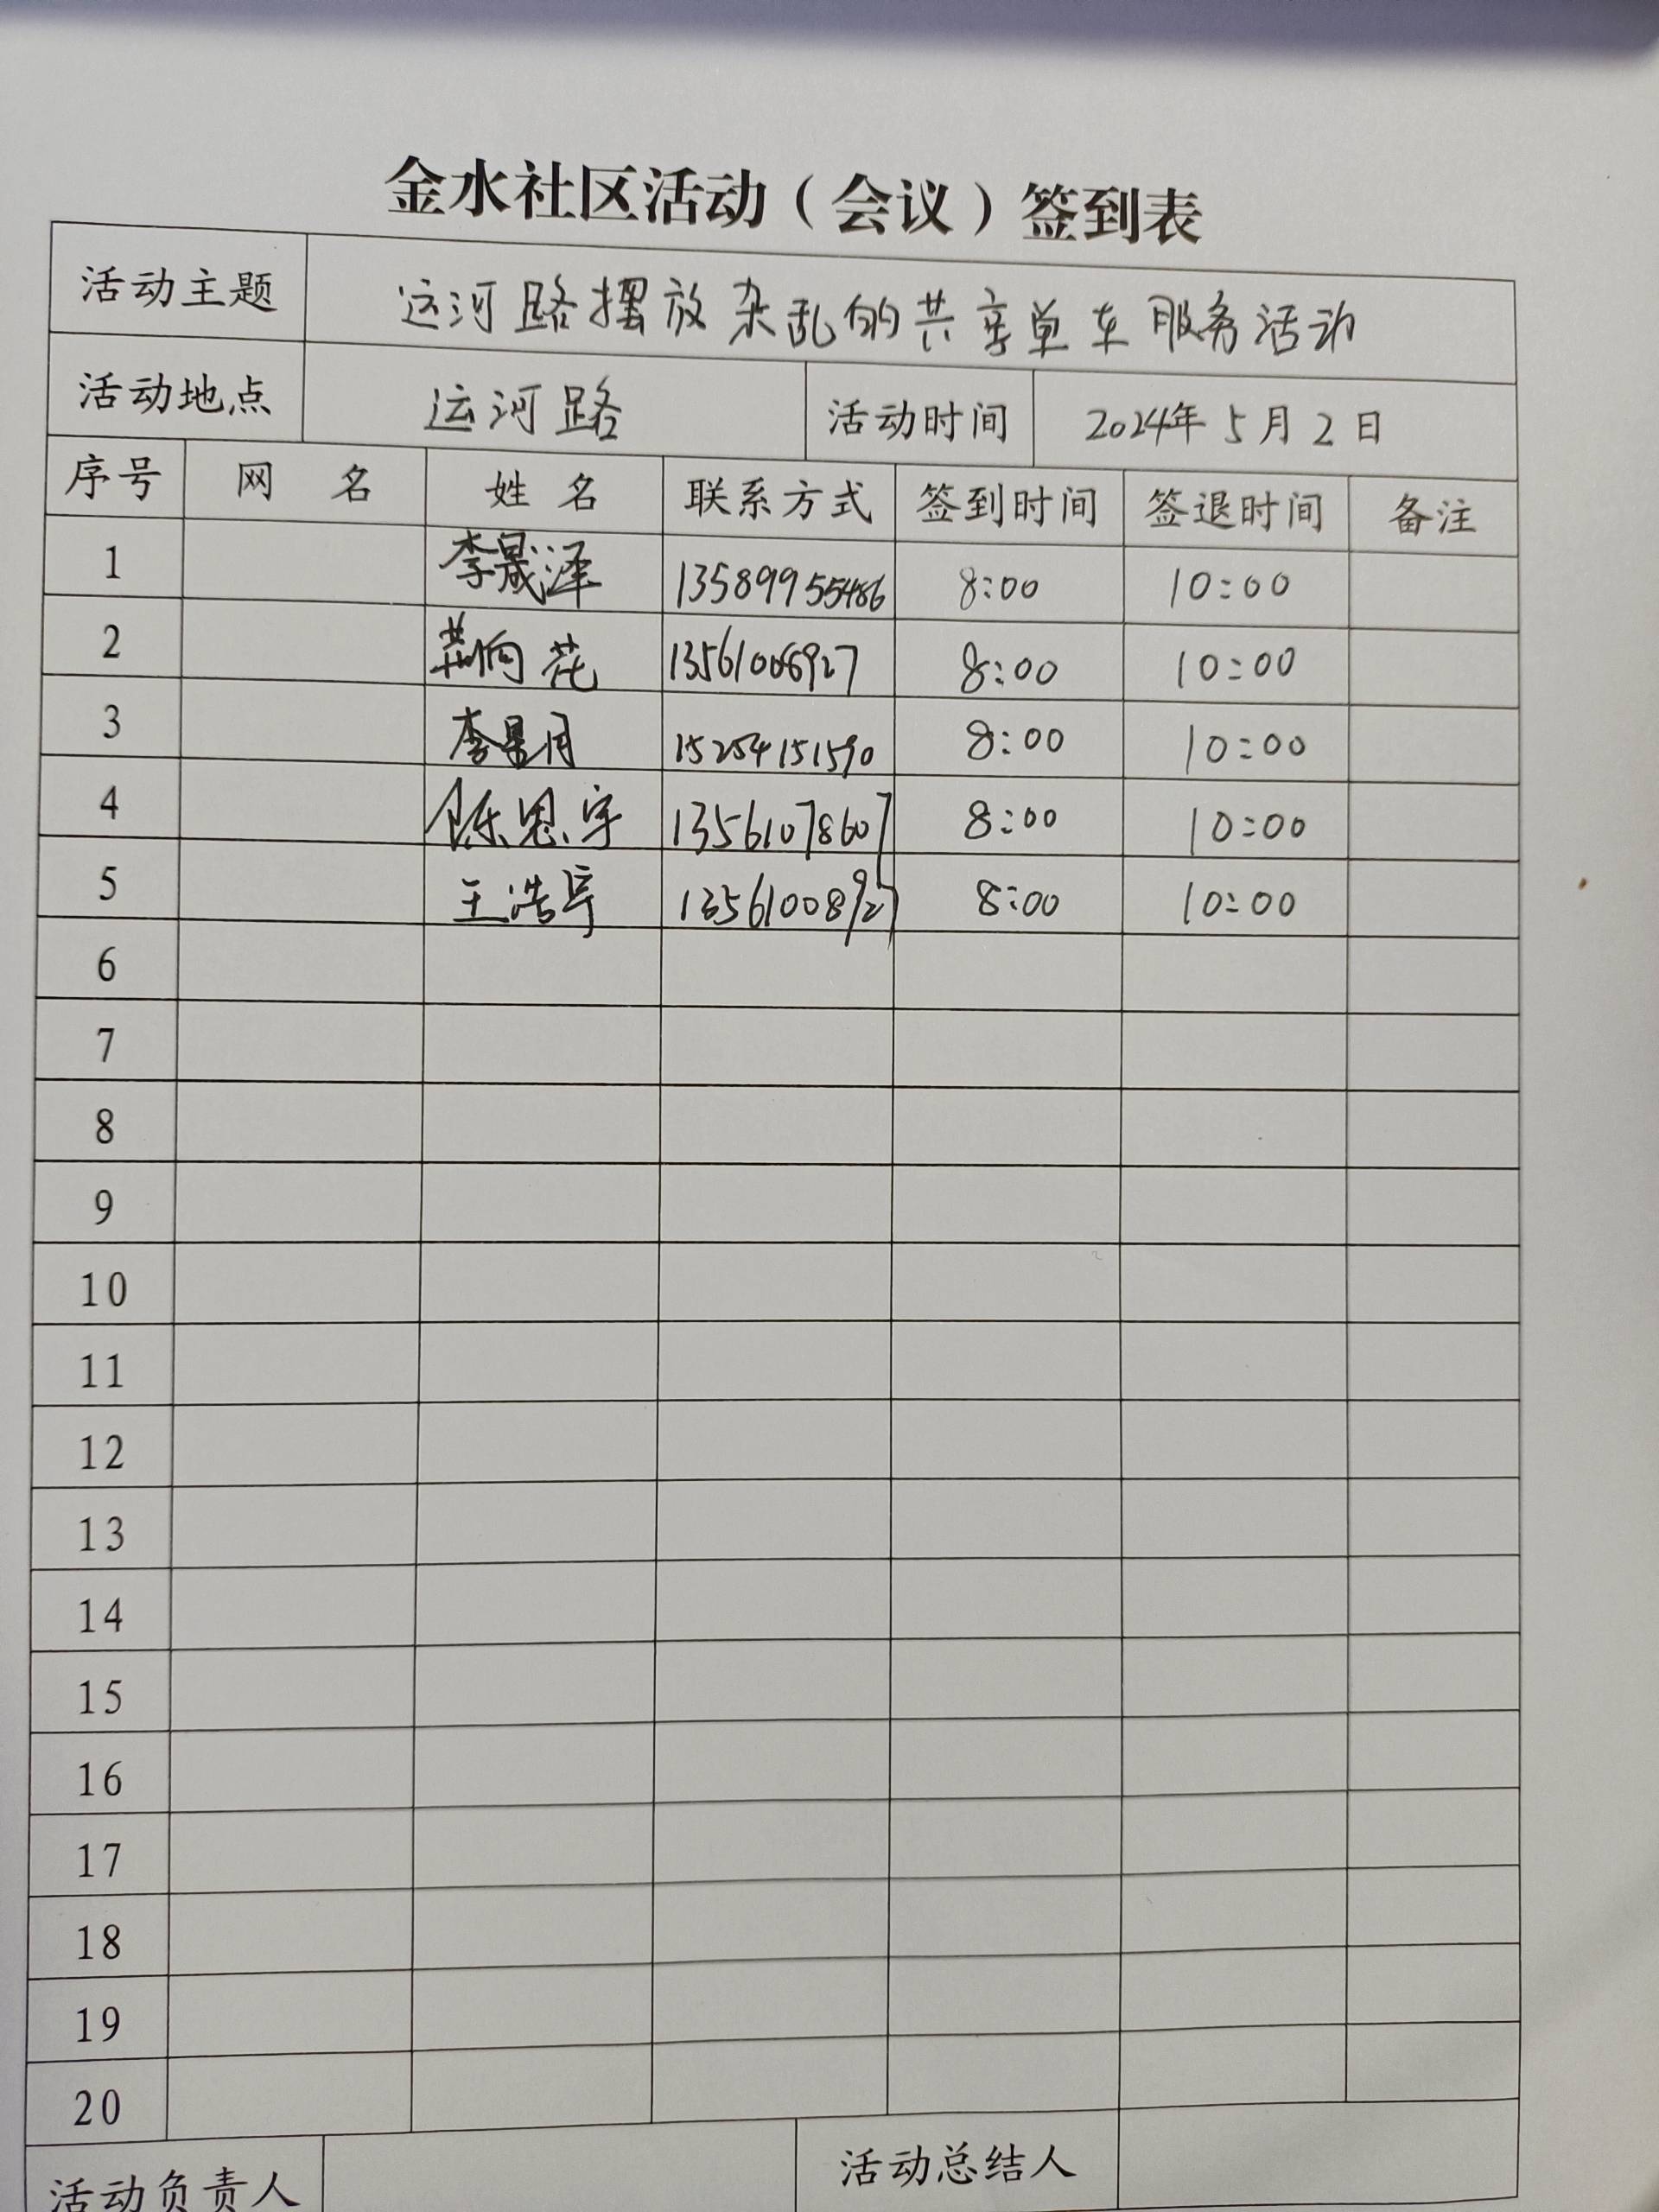 金水社区活动（会议）签到表
活动主题 运河路摆放杂乱的共享单车服务活动
活动地点 运河路 活动时间 2024年5月2日
序号 网 名 姓 名 联系方式 签到时间 签退时间 备注
1 李晟泽 13589955486 8:00 10:00
2 向花 8:00 10:00
3 李 15254151590 8:00 10:00
4 陈恩宇 13561078607 8:00 10:00
5 王浩宇 13561008927 8:00 10:00
6
7
8
9
10
11
12
13
14
15
16
17
18
19
20
活动负责人 活动总结人